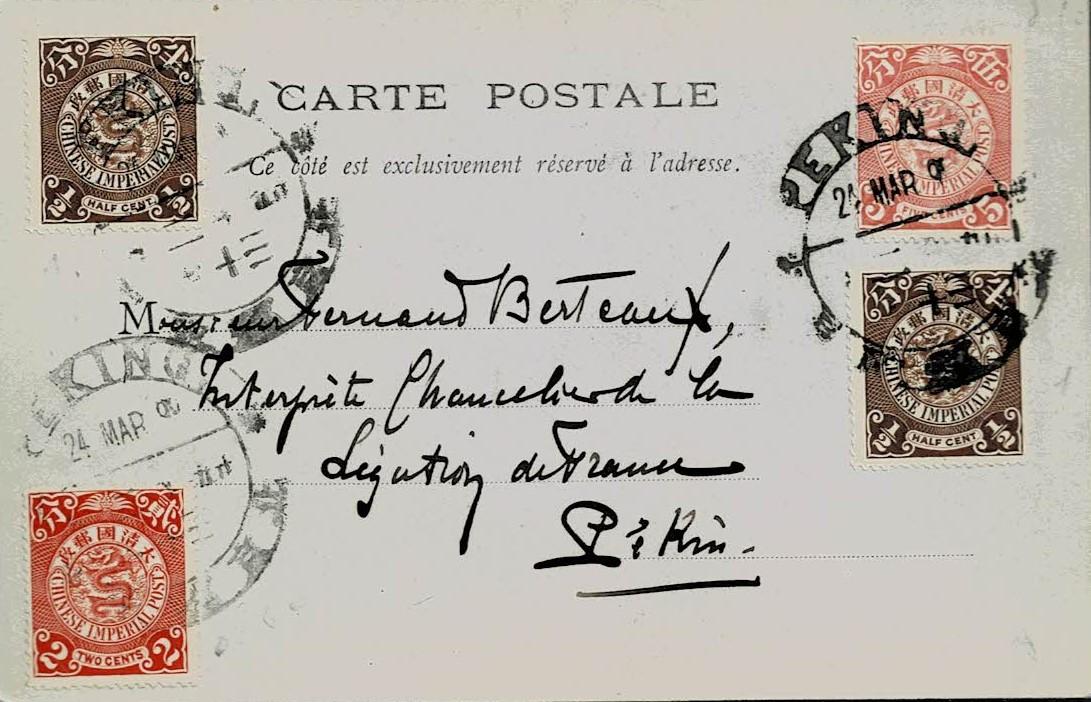 分 半
大清國郵政
CHINESE IMPERIAL POST
1/2 HALF CENT 1/2
CARTE POSTALE
Ce côté est exclusivement réservé à l'adresse.
分 伍
大清國郵政
CHINESE IMPERIAL POST
5 FIVE CENTS 5
PEKING
24 MAR
分 半
大清國郵政
CHINESE IMPERIAL POST
1/2 HALF CENT 1/2
Monsieur Fernand Berteaux,
Interprète Chancelier de la
Légation de France
Pékin.
PEKING
24 MAR
分 貳
大清國郵政
CHINESE IMPERIAL POST
2 TWO CENTS 2